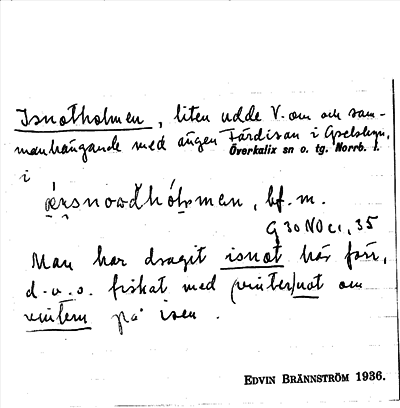 Isnotholmen, liten udde V. om och sam-
manhängande med ängen Färdisan i Gyelsbyn,
Överkalix sn o. tg. Norrb. l.
i
bf. m.
G 30 NO c 1, 35
Man har dragit isnot här förr,
d.v.s. fiskat med (vinter)not om
vintern på isen.
EDVIN BRÄNNSTRÖM 1936.